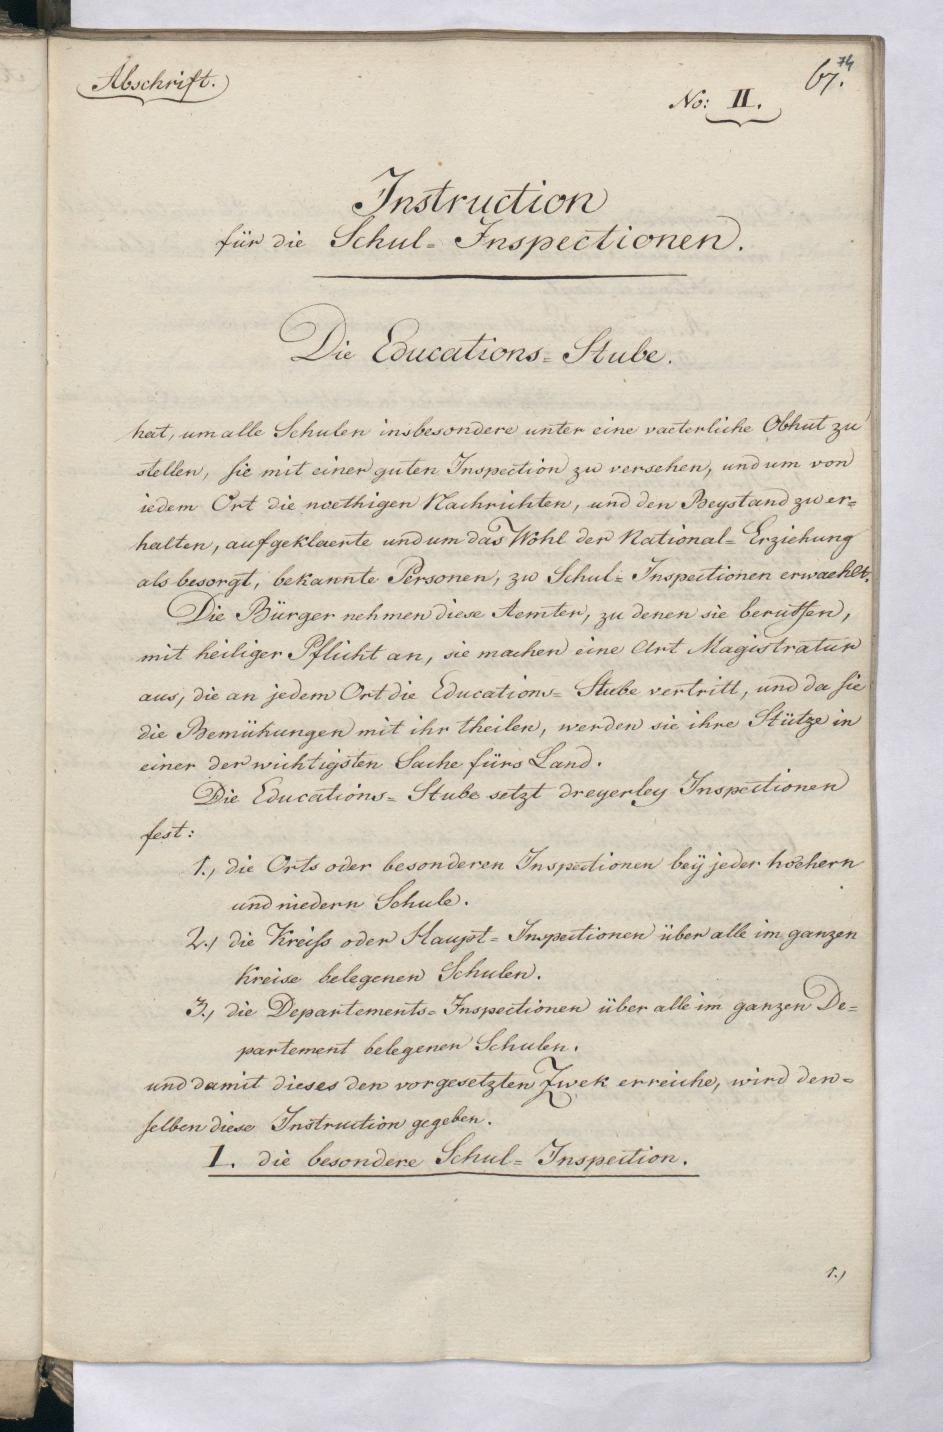 Abschrift.
67. 74
No: II.
Instruction
für die Schul= Inspectionen.
Die Educations= Stube.
hat, um alle Schulen insbesondere unter eine vaeterliche Obhut zu
stellen, sie mit einer guten Inspection zu versehen, und um von
iedem Ort die noethigen Nachrichten, und den Beystand zu er=
halten, aufgeklaerte und um das Wohl der National= Erziehung
als besorgt, bekannte Personen, zu Schul= Inspectionen erwaehlt.
Die Bürger nehmen diese Aemter, zu denen sie beruffen,
mit heiliger Pflicht an, sie machen eine Art Magistratur
aus, die an jedem Ort die Educations= Stube vertritt, und da sie
die Bemühungen mit ihr theilen, werden sie ihre Stütze in
einer der wichtigsten Sache fürs Land.
Die Educations= Stube setzt dreyerley Inspectionen
fest:
1., die Orts oder besonderen Inspectionen beÿ jeder hoehern
und niedern Schule.
2., die Kreiss oder Haupt= Inspectionen über alle im ganzen
Kreise belegenen Schulen.
3., die Departements= Inspectionen über alle im ganzen De=
partement belegenen Schulen.
und damit dieses den vorgesetzten Zwek erreiche, wird den=
selben diese Instruction gegeben.
I. die besondere Schul= Inspection.
1.,